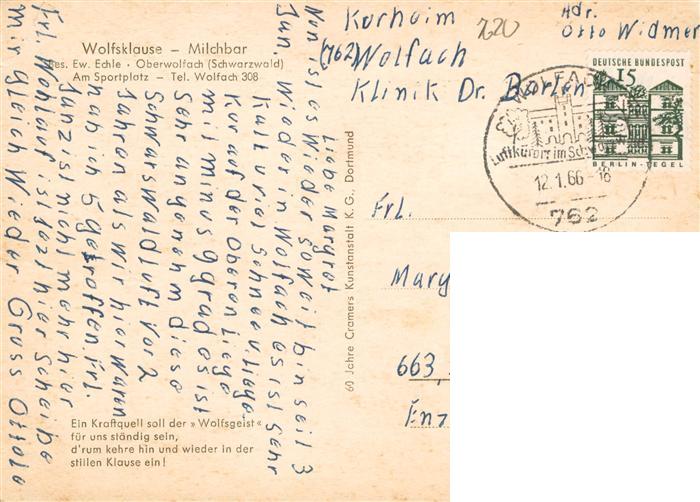 Wolfsklause – Milchbar
Bes. Ew. Echle · Oberwolfach (Schwarzwald)
Am Sportplatz – Tel. Wolfach 308
Ein Kraftquell soll der »Wolfsgeist«
für uns ständig sein,
d'rum kehre hin und wieder in der
stillen Klause ein!
60 Jahre Cramers Kunstanstalt K.G., Dortmund
Liebe Margret
Nun ist es wieder soweit bin seit 3
Jan. wieder in Wolfach es ist sehr
Kalt u viel Schnee. Liege
Kur auf der Oberen Liege
mit minus 9 grad es ist
Sehr angenehm diese
Schwarswaldluft vor 2
Jahren als wir hier waren
hab ich 5 getroffen. Frl.
Janzist nicht mehr hier
Frl. Wohlauf ist jezt hier Scheibe
mir gleich Wieder Gruss Otto
Adr.
Otto Widmer
Kurheim
(762) Wolfach
Klinik Dr. Barlen
220
DEUTSCHE BUNDESPOST
15
BERLIN-TEGEL
WOLFACH
Luftkurort im Schw
12.1.66-18
762
Frl.
Marg
663
Enz